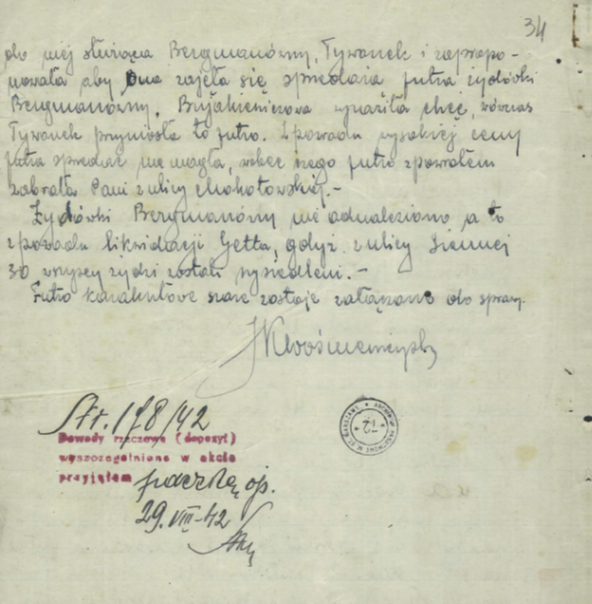 34
do niej służąca Bergmanówny, Tywonek i zapropo-
nowała aby ona zajęła się sprzedażą futra żydówki
Bergmanówny. wyraziła chęć, wówczas
Tywonek przyniosła to futro. Z powodu wysokiej ceny
futra sprzedać nie mogła, wobec czego futro z powrotem
zabrała Pani z ulicy Chochołowskiej.-
Żydówki Bergmanówny nie odnaleziono a to
z powodu likwidacji Getta, gdyż z ulicy Siennej
30 wszyscy żydzi zostali wysiedleni.-
Futro karakułowe szare zostaje załączone do sprawy.
178/42
Dowody rzeczowe (depozyt)
wyszczególnione w akcie
przyjąłem paczkę op.
29.VIII-42
72